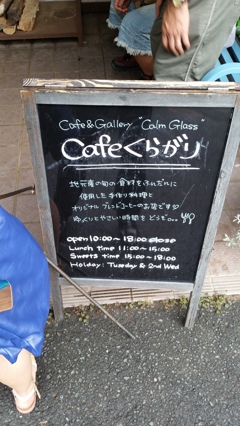 Cafe&Gallery "Calm Glass"
Cafeくらがり
地元産の旬の食材をふんだんに
使用した手作り料理と
オリジナルブレンドコーヒーのお店です
ゆっくりとやさしい時間を どうぞ。。
open 10:00～18:00 close
Lunch time 11:00～15:00
Sweets time 15:00～18:00
Holiday: Tuseday & 2nd Wed